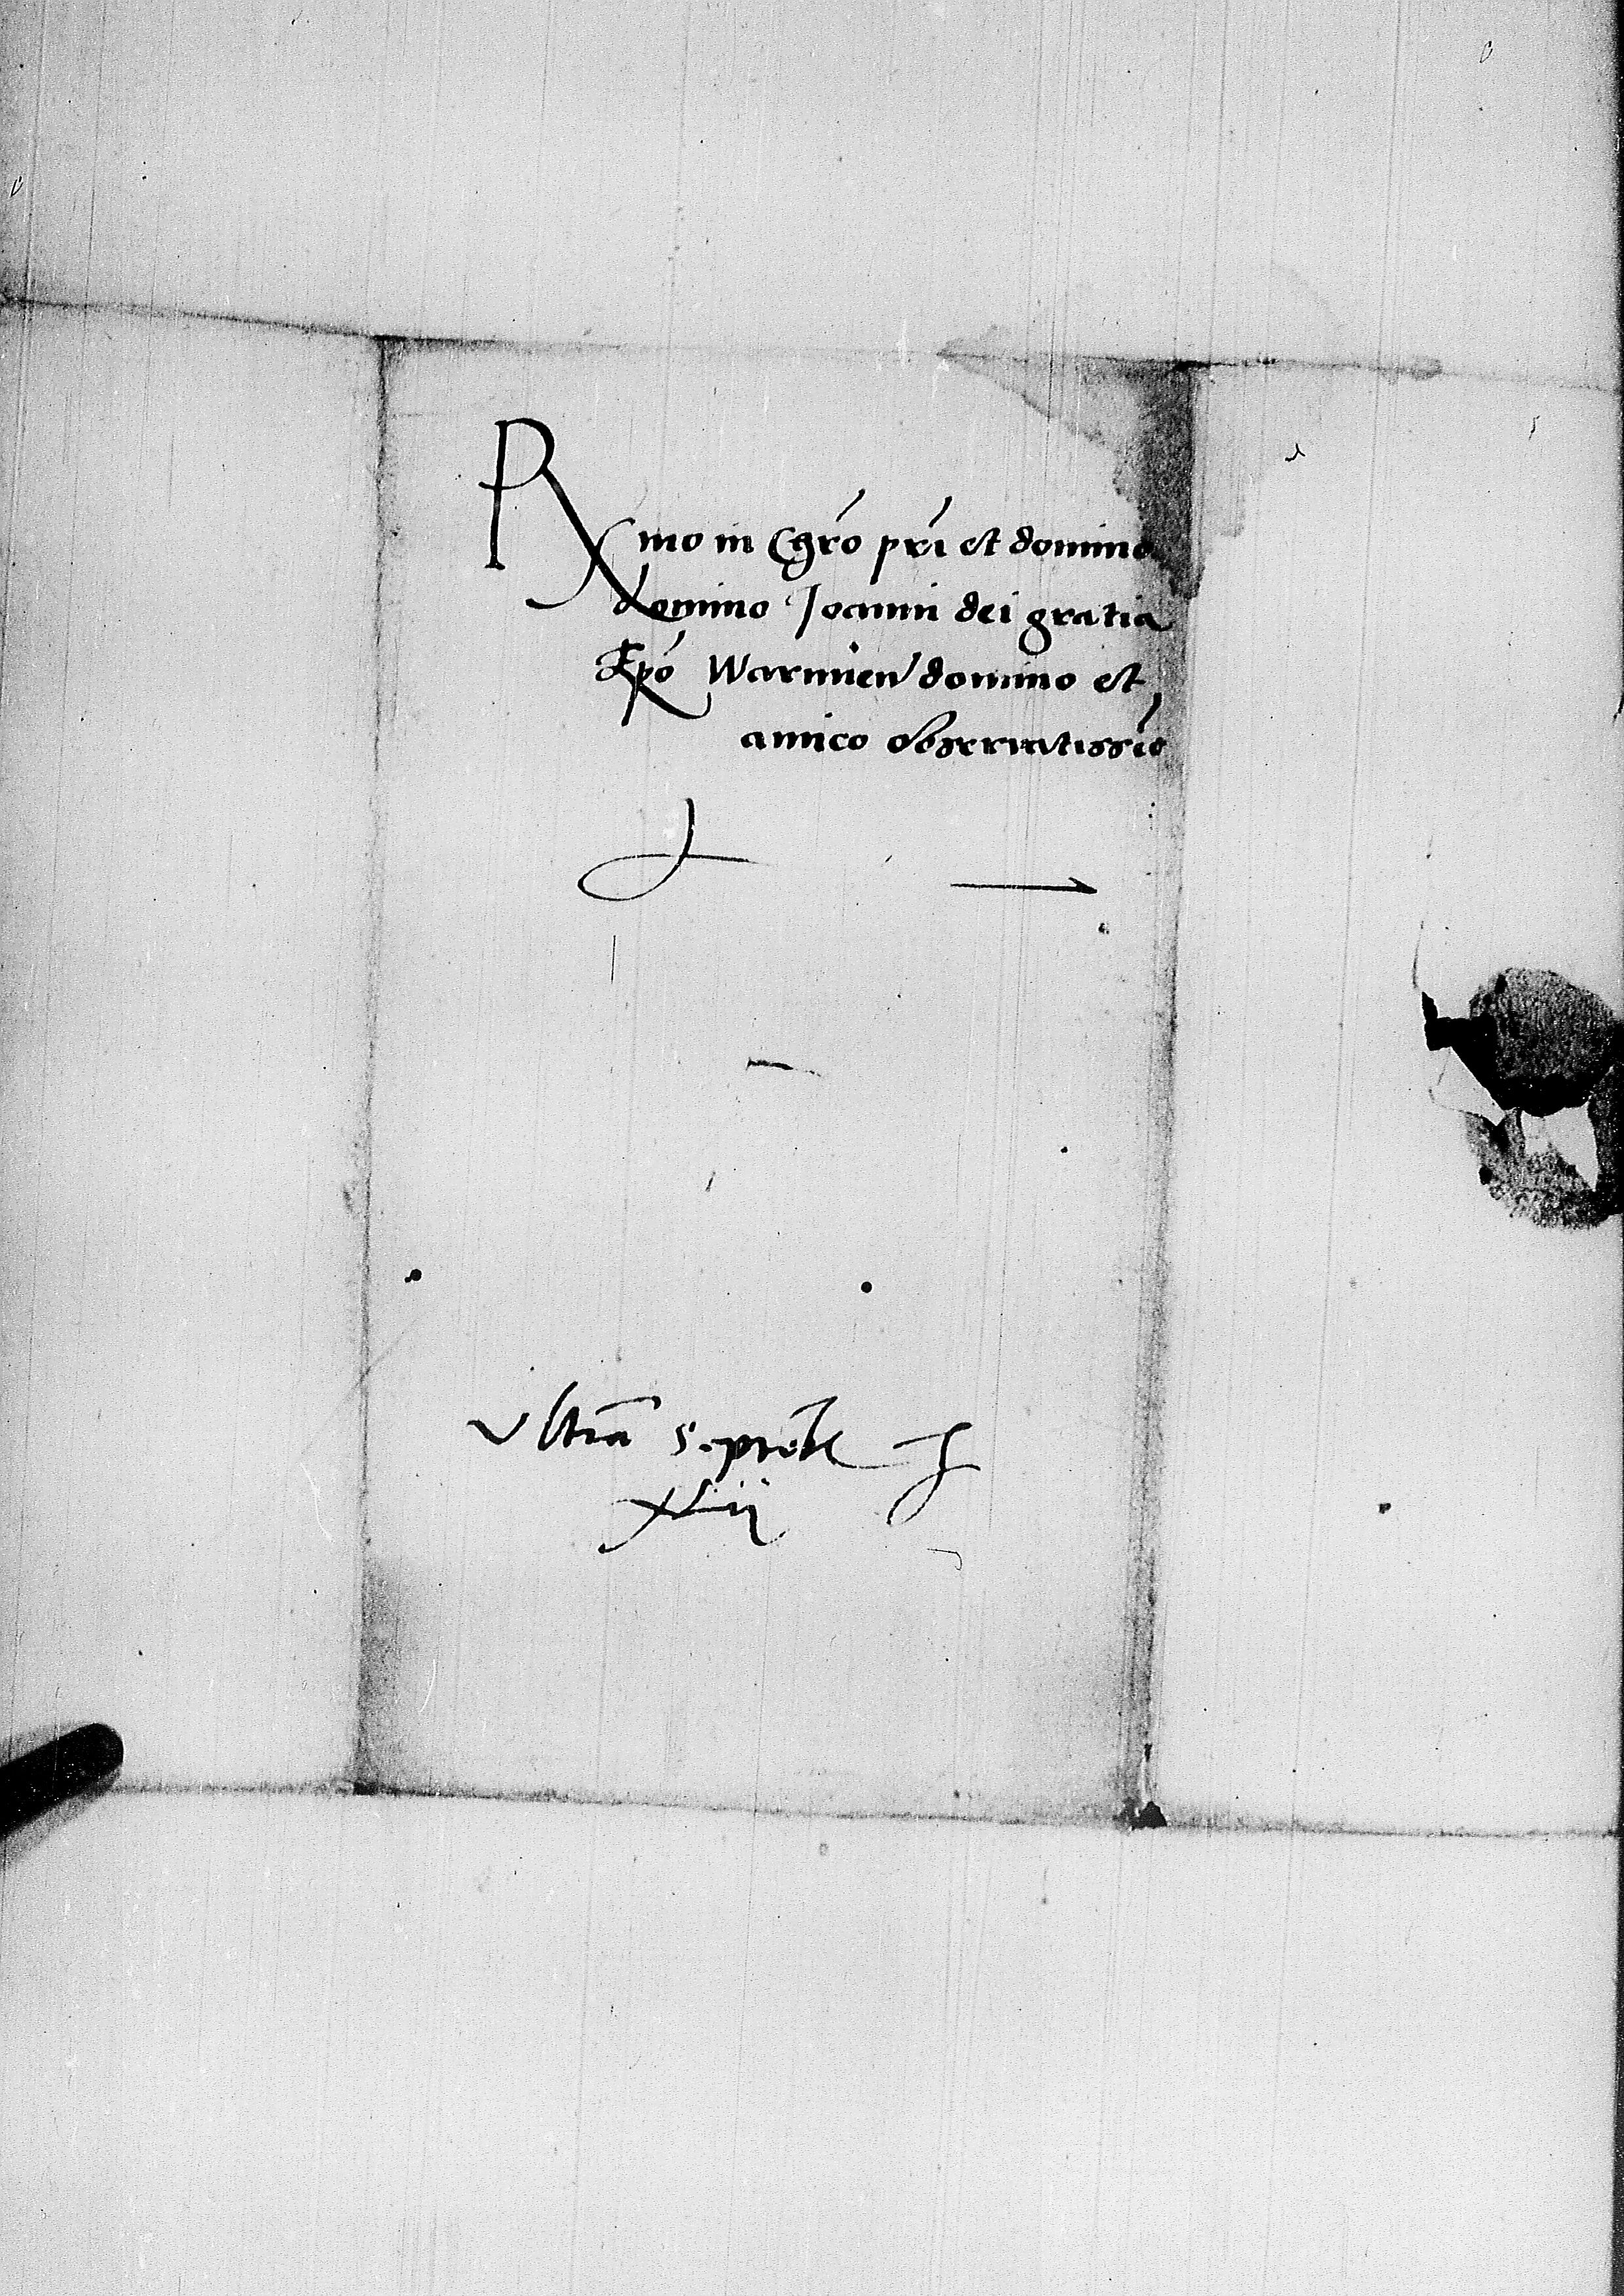 Rmo in Chro pri et domino
domino Joanni dei gratia
Epo Warmien domino et
amico observatissio
Ultia Septeb
xlii